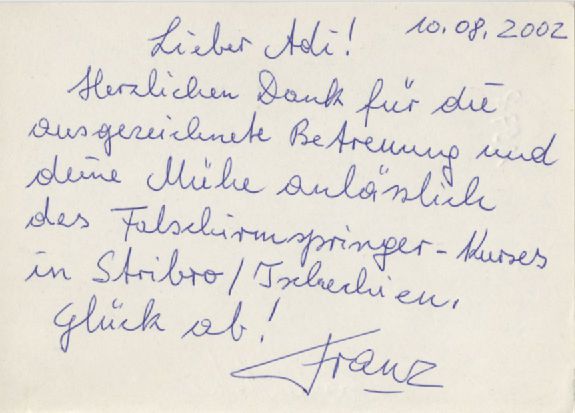 10.08.2002
Lieber Adi!
Herzlichen Dank für die
ausgezeichnete Betreuung und
deine Mühe anlässlich
des Falschirmspringer-Kurses
in Stribro/Tschechien.
Glück ab!
Franz